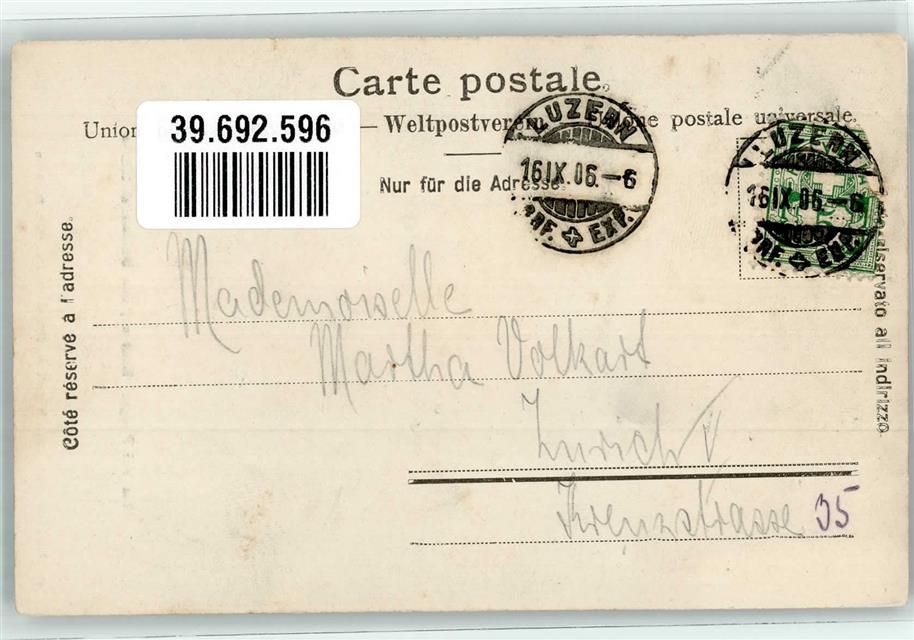 Carte postale.
Union — Weltpostverein postale universale.
39.692.596
Nur für die Adresse.
LUZERN
16.IX.06.–6
BRF. EXP.
LUZERN
16.IX.06.–6
BRF. EXP.
Côté réservé à l'adresse.
riservato all indirizzo
Mademoiselle
Martha Volkart
Zurich V
Kreuzstrasse 35